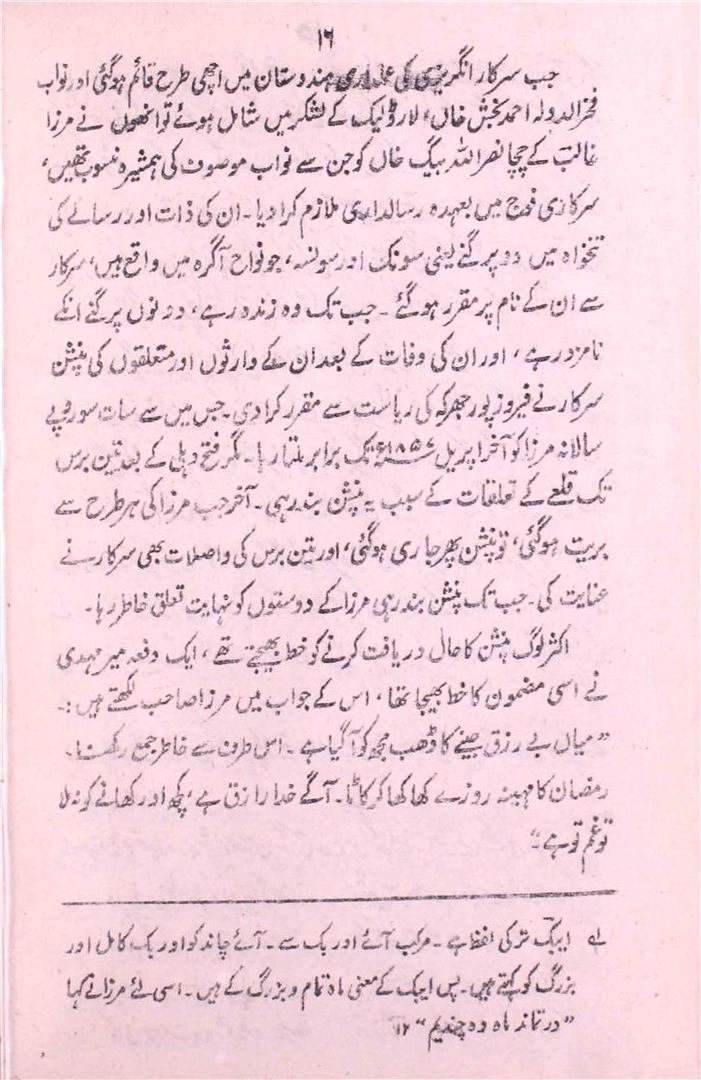 ۱۶
جب سرکار انگریزی کی عملداری ہندوستان میں اچھی طرح قائم ہوگئی اور نواب
فخرالدولہ احمد بخش خاں، لارڈ لیک کے لشکر میں شامل ہوئے تو انھوں نے مرزا
غالب کے چچا نصراللہ بیگ خاں کو جن سے نواب موصوف کی ہمشیرہ منسوب تھیں،
سرکاری فوج میں بعہدہ رسالداری ملازم کرادیا۔ ان کی ذات اور رسالے کی
تنخواہ میں دو پرگنے یعنی سونک اور سونسہ، جو نواح آگرہ میں واقع ہیں، سرکار
سے ان کے نام پر مقرر ہوگئے۔ جب تک وہ زندہ رہے، دونوں پرگنے انکے
نامزد رہے، اور ان کی وفات کے بعد ان کے وارثوں اور متعلقوں کی پنشن
سرکار نے فیروزپور جھرکہ کی ریاست سے مقرر کرادی۔ جس میں سے سات سو روپے
سالانہ مرزا کو آخر اپریل ۱۸۵۷ء تک برابر ملتا رہا۔ مگر فتح دہلی کے بعد تین برس
تک قلعے کے تعلقات کے سبب یہ پنشن بند رہی۔ آخر جب مرزا کی ہر طرح سے
بریت ہوگئی، تو پنشن پھر جاری ہوگئی، اور تین برس کی واصلات بھی سرکار نے
عنایت کی۔ جب تک پنشن بند رہی مرزا کے دوستوں کو نہایت تعلق خاطر رہا۔
اکثر لوگ پنشن کا حال دریافت کرنے کو خط بھیجتے تھے، ایک دفعہ میر مہدی
نے اسی مضمون کا خط بھیجا تھا، اس کے جواب میں مرزا صاحب لکھتے ہیں:۔
"میاں بے رزق جینے کا ڈھب مجھ کو آگیا ہے۔ اس طرف سے خاطر جمع رکھنا۔
رمضان کا مہینہ روزے کھا کھا کر کاٹا۔ آگے خدا رازق ہے، کچھ اور کھانے کو نہ ملا
تو غم تو ہے۔"
لے ایبک ترکی لفظ ہے۔ مرکب آئے اور بک سے۔ آئے چاند کو اور بک کامل اور
بزرگ کو کہتے ہیں۔ پس ایبک کے معنی ماہ تمام و بزرگ کے ہیں۔ اسی لئے مرزا نے کہا
"در تمامی ماہ دہ چندیم" ۱۲